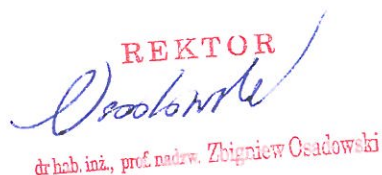 REKTOR
Osadowski
dr hab. inż., prof. nadzw. Zbigniew Osadowski